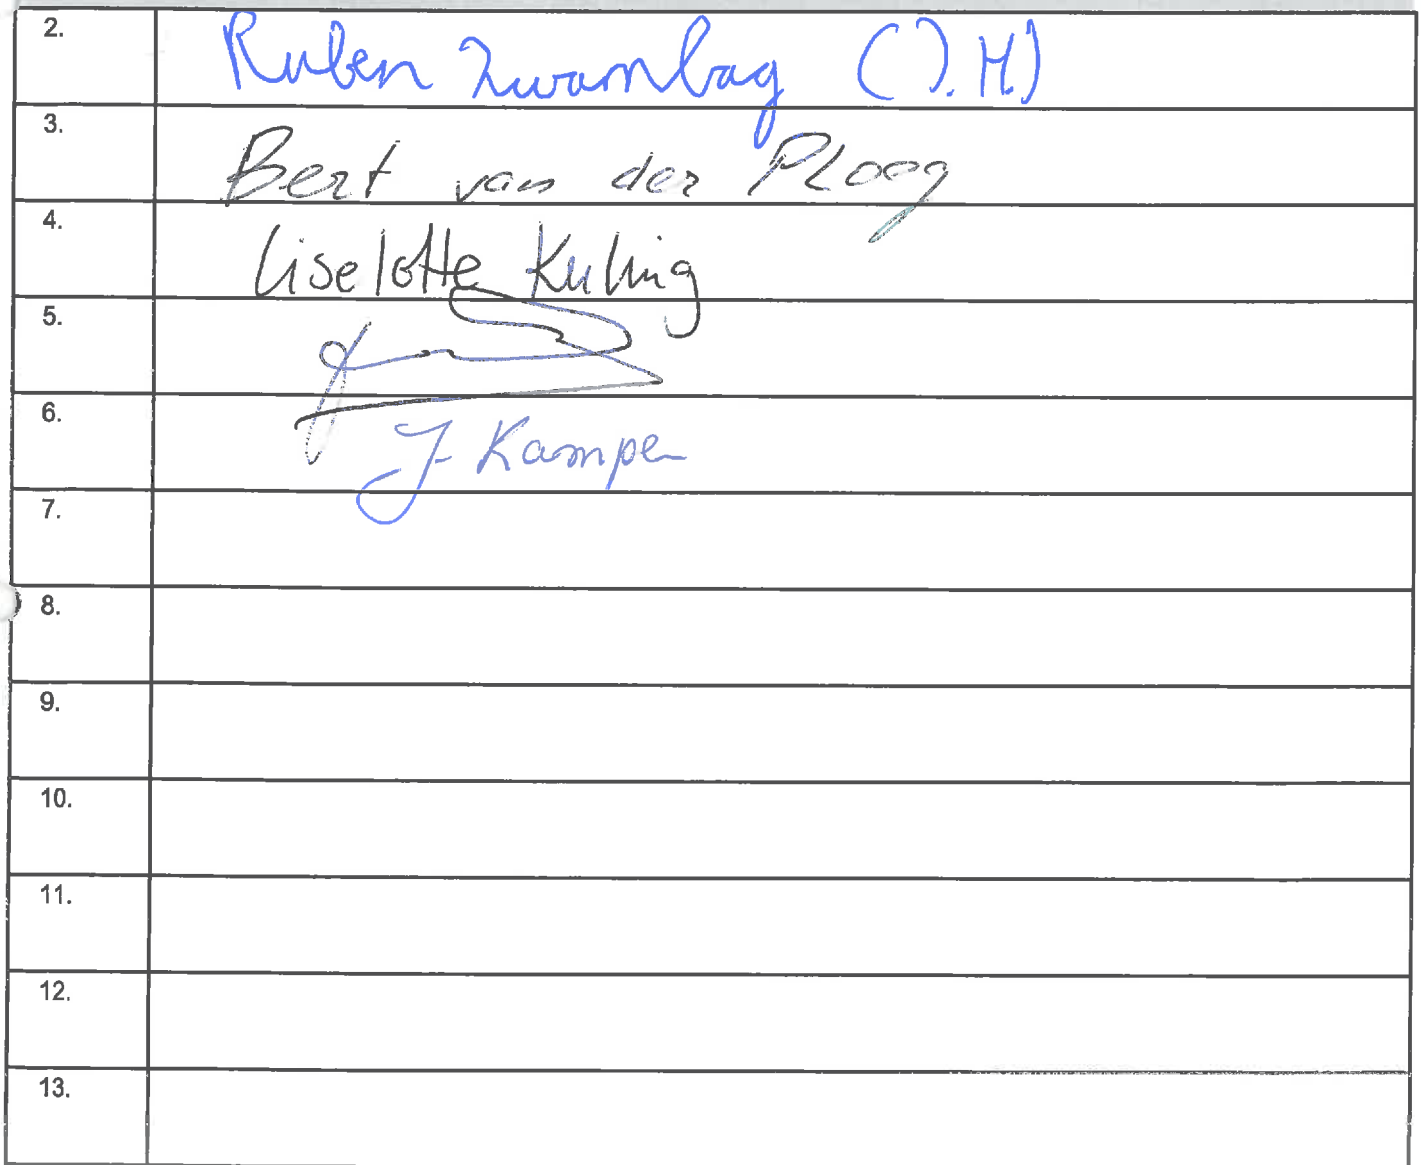 2. Ruben Zwambag (J.H.)
3. Bert van der Ploeg
4. Liselotte Kuling
5.
6. J. Kampen
7.
8.
9.
10.
11.
12.
13.